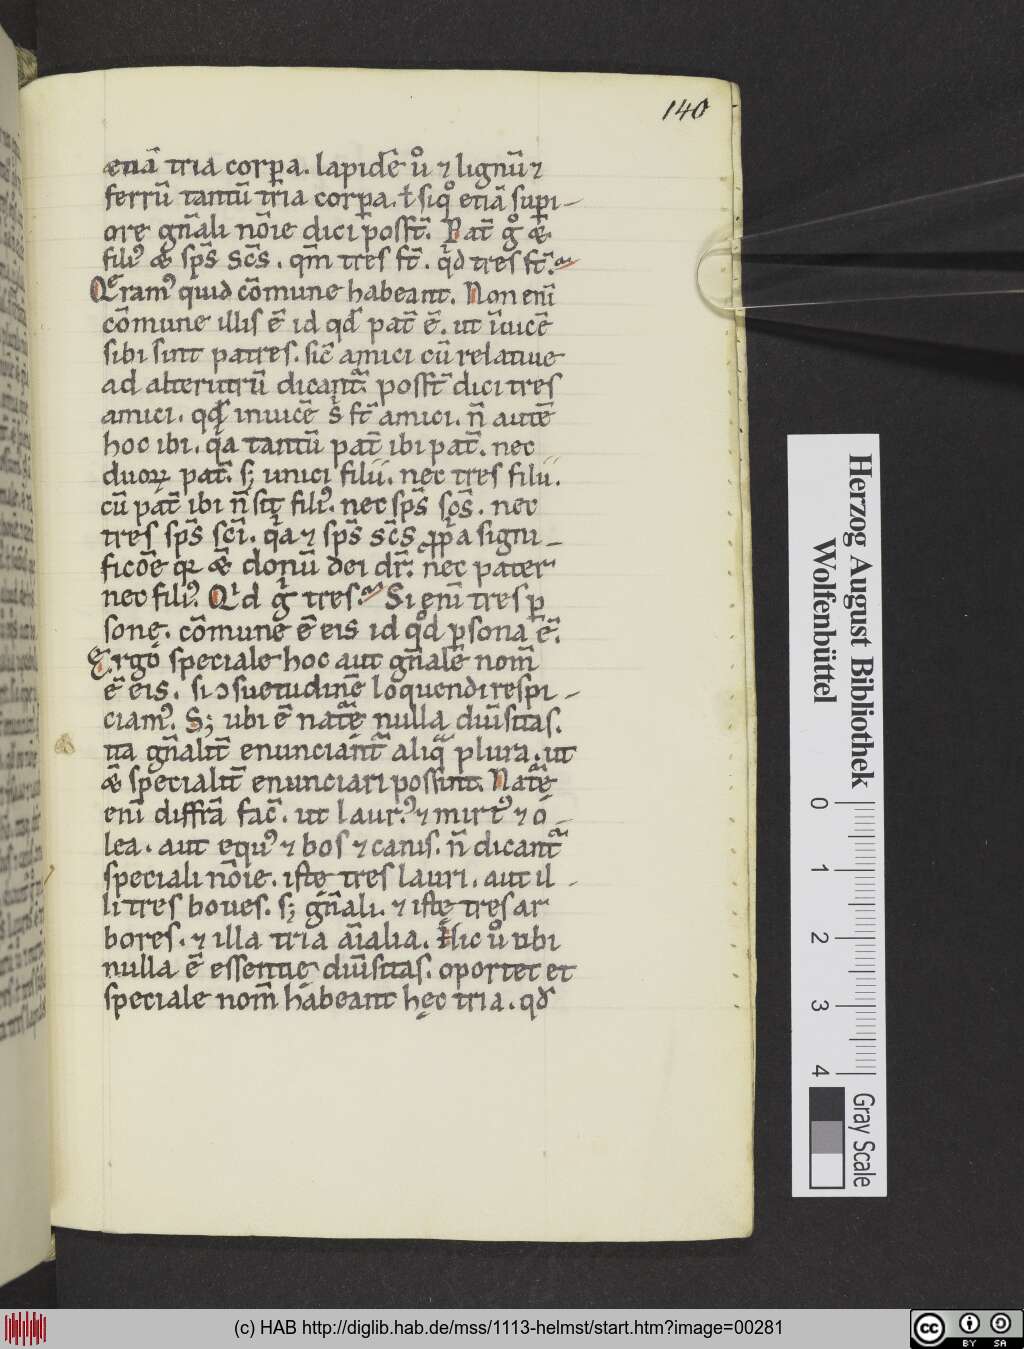 140
etiã tria corpa. lapidẽ ů ⁊ lignũ ⁊
ferrũ tantũ tria corpa. ł siq̊ etiã supi-
ore gñali nõie dici possт̃. Pat̃ g̊ ⁊
filiꝰ ⁊ sp̃s sc̃s. qm̃ tres st̃. qd tres st̃.
Qeramꝰ quid cõmune habeant. Non eni̅
cõmune illis ẽ id qd̛ pat̃ ẽ. ut ĩuicẽ
sibi sint patres. sic̃ amici cũ relatiue
ad alterutrũ dicant̃ posst̃ dici tres
amici. qd̛ inuicẽ s̃ st̃ amici. ñ autẽ
hoc ibi. q̇a tantũ pat̃ ibi pat̃. nec
duoꝝ pat̃. sꝫ unici filii. nec tres filii.
cũ pat̃ ibi ñ sit filiꝰ. nec sp̃s sc̃s. nec
tres sp̃s sc̃i. q̇a ⁊ sp̃s sc̃s ꝓpa signi-
ficõe qͣ ẽ donũ dei dr̃. nec pater
nec filiꝰ. Qid g̊ tres. Si eni̅ tres ꝑ
sonę. cõmune ẽ eis id q̊d ꝑsona ẽ.
Ergo speciale hoc aut gñale nom̃
ẽ eis. si ↄsuetudinẽ loquendi respi-
ciamꝰ. Sꝫ ubi ẽ natͣę nulla diũsitas.
ita gñalit̃ enunciant̃ aliqͣ plura. ut
⁊ specialit̃ enunciari possint. Natͣę
eni̅ diffrã fac̃. ut laurꝰ ⁊ mirtꝰ ⁊ o-
lea. aut equꝰ ⁊ bos ⁊ canis. ñ dicant̃
speciali nõie. istę tres lauri. aut il-
li tres boues. sꝫ gñali. ⁊ istę tres ar
bores. ⁊ illa tria aĩalia. Hic ů ubi
nulla ẽ essentię diũsitas. oportet et
speciale nom̃ habeant hęc tria. qd̛
Herzog August Bibliothek
Wolfenbüttel
0 1 2 3 4
Gray Scale
(c) HAB http://diglib.hab.de/mss/1113-helmst/start.htm?image=00281
cc BY SA